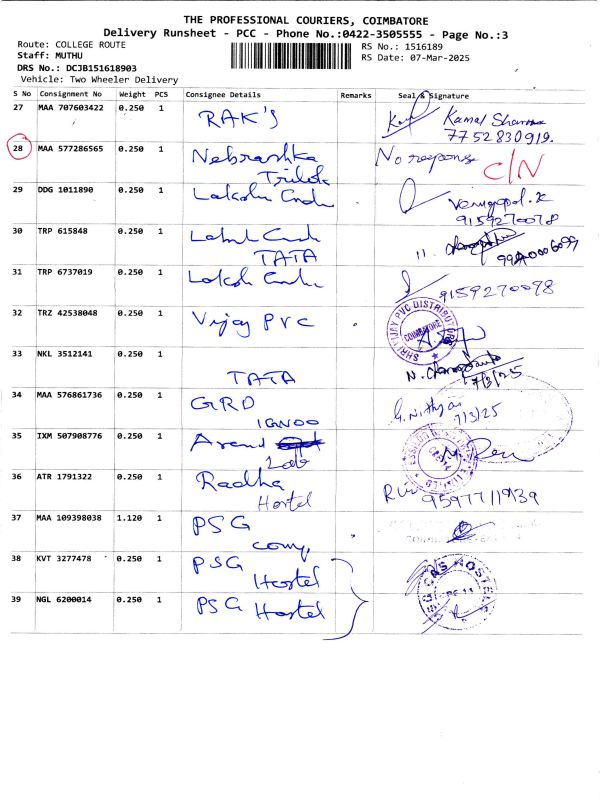 THE PROFESSIONAL COURIERS, COIMBATORE
Delivery Runsheet - PCC - Phone No.:0422-3505555 - Page No.:3
Route: COLLEGE ROUTE
RS No.: 1516189
Staff: MUTHU
RS Date: 07-Mar-2025
DRS No.: DCJB151618903
Vehicle: Two Wheeler Delivery
S No Consignment No Weight PCS Consignee Details Remarks Seal & Signature
27 MAA 707603422 0.250 1 RAK'S Kamal Sharma
7752830919.
28 MAA 577286565 0.250 1 Nebrashka No response C/N
29 DDG 1011890 0.250 1 Venugopal.K
9159270078
30 TRP 615848 0.250 1
TATA
31 TRP 6737019 0.250 1 9159270098
32 TRZ 42538048 0.250 1 Vijay PVC SHRI VIJAY PVC DISTRIBUTORS COIMBATORE
33 NKL 3512141 0.250 1 TATA 7/3/25
34 MAA 576861736 0.250 1 GRD G. Nithya
IGNOO 7/3/25
35 IXM 507908776 0.250 1
Lab
36 ATR 1791322 0.250 1 Radha
Hostel
37 MAA 109398038 1.120 1 PSG
38 KVT 3277478 0.250 1 PSG
Hostel
39 NGL 6200014 0.250 1 PSG Hostel